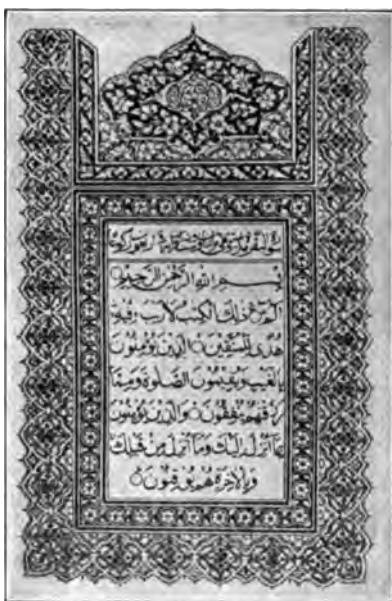 سورة البقرة
بسم الله الرحمن الرحيم
الم ذلك الكتب لا ريب فيه
هدى للمتقين الذين يؤمنون
بالغيب ويقيمون الصلوة ومما
رزقنهم ينفقون والذين يؤمنون
بما انزل اليك وما انزل من قبلك
وبالاخرة هم يوقنون